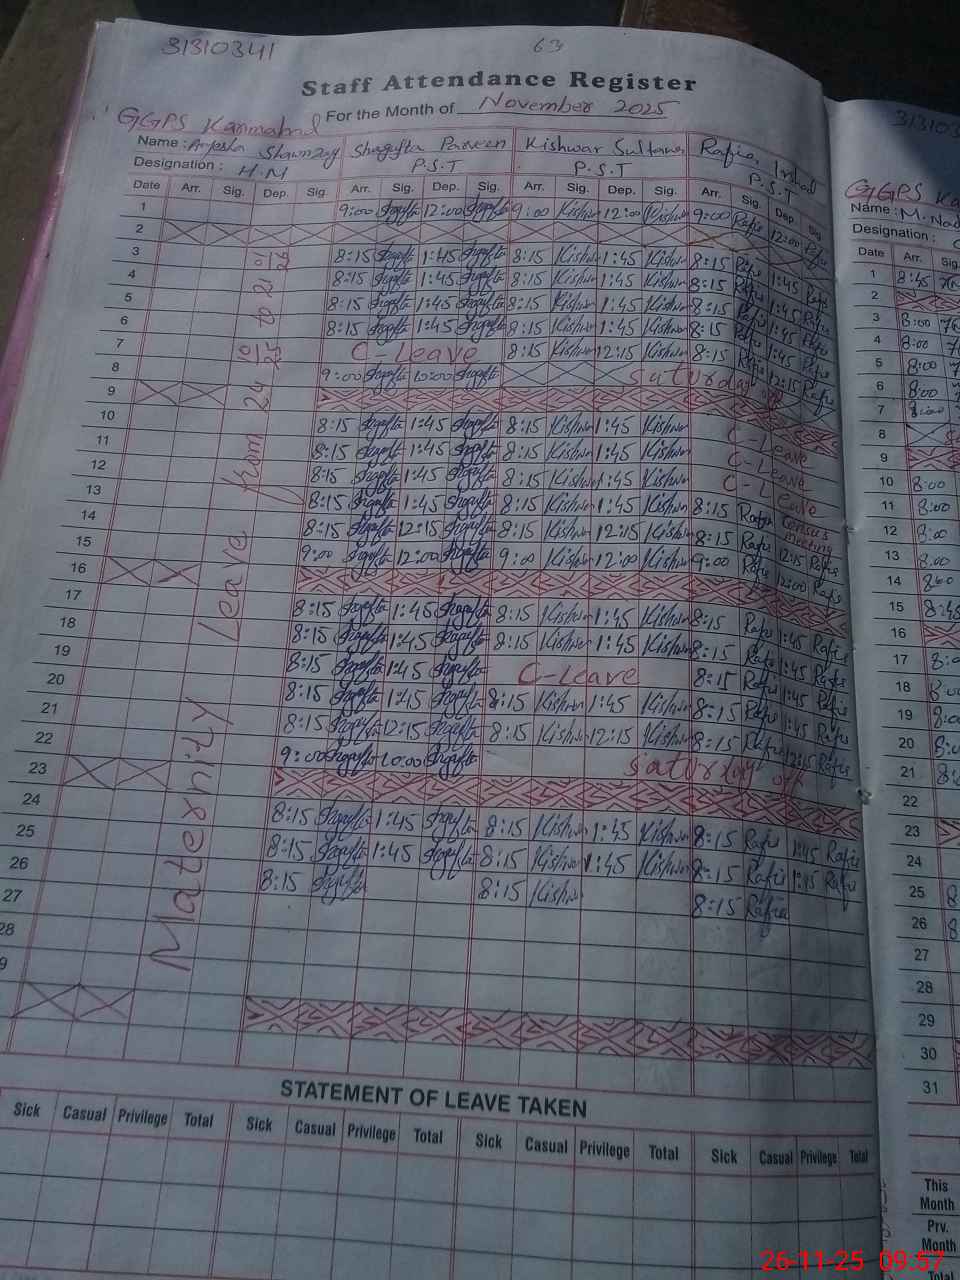 31310341
63
Staff Attendance Register
GGPS Karimabad For the Month of November 2025
Name : Shagufta Parveen Kishwar Sultana Rafia Irshad
Designation : H.M P.S.T P.S.T P.S.T
Date Arr. Sig. Dep. Sig. Arr. Sig. Dep. Sig. Arr. Sig. Dep. Sig. Arr. Sig. Dep. Sig.
1 9:00 Shagufta 12:00 Shagufta 9:00 Kishwar 12:00 Kishwar 9:00 Rafia 12:00 Rafia
2
3 8:15 Shagufta 1:45 Shagufta 8:15 Kishwar 1:45 Kishwar 8:15 Rafia 1:45 Rafia
4 8:15 Shagufta 1:45 Shagufta 8:15 Kishwar 1:45 Kishwar 8:15 Rafia 1:45 Rafia
5 8:15 Shagufta 1:45 Shagufta 8:15 Kishwar 1:45 Kishwar 8:15 Rafia 1:45 Rafia
6 8:15 Shagufta 1:45 Shagufta 8:15 Kishwar 1:45 Kishwar 8:15 Rafia 1:45 Rafia
7 C-Leave 8:15 Kishwar 12:15 Kishwar 8:15 Rafia 12:15 Rafia
8 9:00 Shagufta 10:00 Shagufta Saturday
9
10 8:15 Shagufta 1:45 Shagufta 8:15 Kishwar 1:45 Kishwar C-Leave
11 8:15 Shagufta 1:45 Shagufta 8:15 Kishwar 1:45 Kishwar C-Leave
12 8:15 Shagufta 1:45 Shagufta 8:15 Kishwar 1:45 Kishwar C-Leave
13 8:15 Shagufta 1:45 Shagufta 8:15 Kishwar 1:45 Kishwar 8:15 Rafia Census meeting
14 8:15 Shagufta 12:15 Shagufta 8:15 Kishwar 12:15 Kishwar 8:15 Rafia 12:15 Rafia
15 9:00 Shagufta 12:00 Shagufta 9:00 Kishwar 12:00 Kishwar 9:00 Rafia 12:00 Rafia
16
17 8:15 Shagufta 1:45 Shagufta 8:15 Kishwar 1:45 Kishwar 8:15 Rafia 1:45 Rafia
18 8:15 Shagufta 1:45 Shagufta 8:15 Kishwar 1:45 Kishwar 8:15 Rafia 1:45 Rafia
19 8:15 Shagufta 1:45 Shagufta C-Leave 8:15 Rafia 1:45 Rafia
20 8:15 Shagufta 1:45 Shagufta 8:15 Kishwar 1:45 Kishwar 8:15 Rafia 1:45 Rafia
21 8:15 Shagufta 12:15 Shagufta 8:15 Kishwar 12:15 Kishwar 8:15 Rafia 12:15 Rafia
22 9:00 Shagufta 10:00 Shagufta Saturday off
23
24 8:15 Shagufta 1:45 Shagufta 8:15 Kishwar 1:45 Kishwar 8:15 Rafia 1:45 Rafia
25 8:15 Shagufta 1:45 Shagufta 8:15 Kishwar 1:45 Kishwar 8:15 Rafia 1:45 Rafia
26 8:15 Shagufta 8:15 Kishwar 8:15 Rafia
27
28
9
Maternity Leave from 24 10/25 to 21 01/26
STATEMENT OF LEAVE TAKEN
Sick Casual Privilege Total Sick Casual Privilege Total Sick Casual Privilege Total Sick Casual Privilege Total
Name : M.
Designation :
Date Arr. Sig.
1 8:45
2
3 8:00
4 8:00
5 8:00
6 8:00
7 8:00
8
9
10 8:00
11 8:00
12 8:00
13 8:00
14 8:00
15 8:45
16
17
18
19
20
21
22
23
24
25
26
27
28
29
30
31
This Month
Prv. Month
Total
26-11-25 09:57